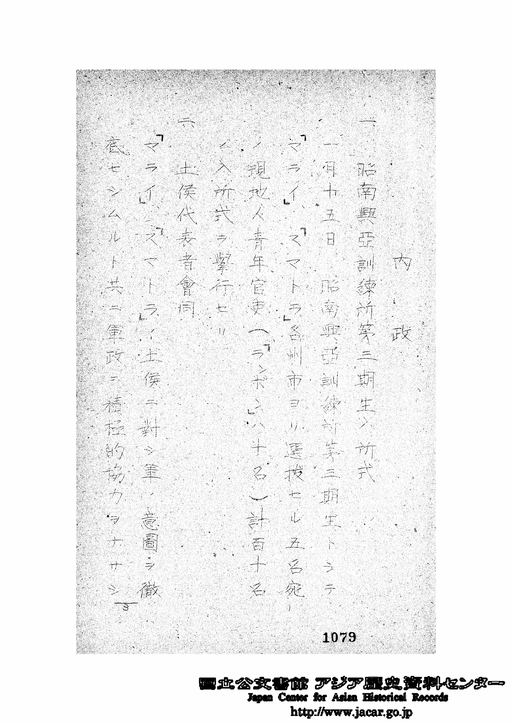 内政
一、昭南興亞訓練所第三期生入所式
一月十五日昭南興亞訓練所第三期生トシテ
「マライ」、「スマトラ」各州市ヨリ選拔セル五名宛
ノ現地人青年官吏(「ランポン」ハ十名)計百十名
ノ入所式ヲ擧行セリ
二、土侯代表者會同
「マライ」、「スマトラ」ノ土侯ニ對シ軍ノ意圖ヲ徹
底セシムルト共ニ軍政ニ積極的協力ヲナサシ
1079
國立公文書館 アジア歴史資料センター
Japan Center for Asian Historical Records
http://www.jacar.go.jp